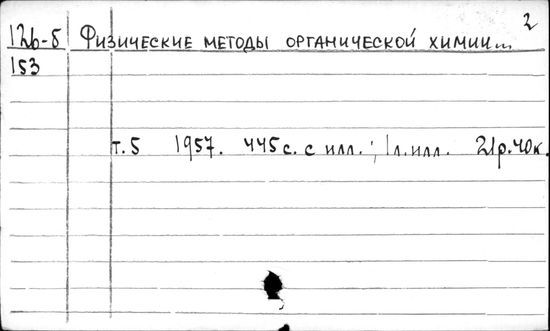 2
126-5 Физические методы органической химии...
153
т.5 1957. 445 с. с илл.; 1 л. илл. 21р.40к.